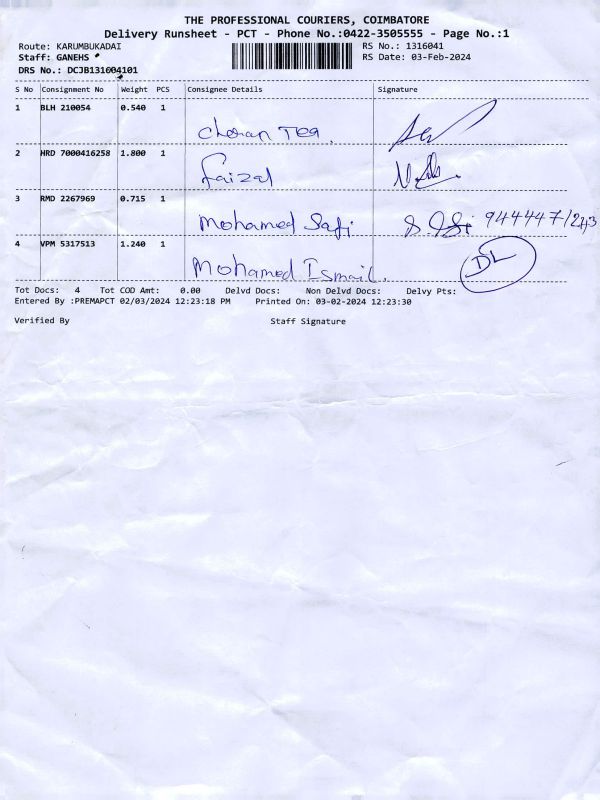 THE PROFESSIONAL COURIERS, COIMBATORE
Delivery Runsheet - PCT - Phone No.:0422-3505555 - Page No.:1
Route: KARUMBUKADAI RS No.: 1316041
Staff: GANEHS RS Date: 03-Feb-2024
DRS No.: DCJB131604101
S No Consignment No Weight PCS Consignee Details Signature
1 BLH 210054 0.540 1 Cheran Tea
2 HRD 7000416258 1.800 1 Faizal
3 RMD 2267969 0.715 1 Mohamed Safi
4 VPM 5317513 1.240 1 Mohamed Ismail. DL
Tot Docs: 4 Tot COD Amt: 0.00 Delvd Docs: Non Delvd Docs: Delvy Pts:
Entered By :PREMAPCT 02/03/2024 12:23:18 PM Printed On: 03-02-2024 12:23:30
Verified By Staff Signature